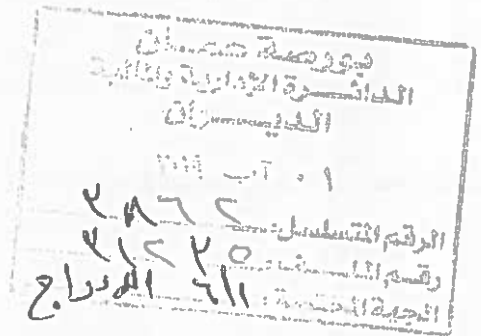 بورصة عمان
الدائرة الإدارية والمالية
الديوان
٠١ آب ٢٠١٩
الرقم المتسلسل: ٣٨٦٢
رقم الملف: ٣١٢٢٥
الجهة المختصة: الإدراج